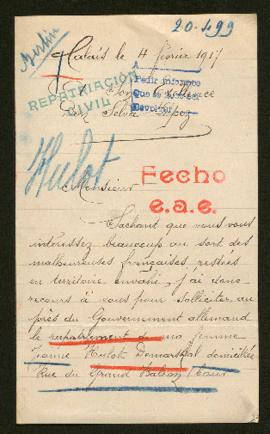 20.499
Berlin
Halais le 4 février 1917
A
Pedir informes
REPATRIACIÓN
CIVIL
Son Excellence
Hulot
Fecho
e.a.e.
Monsieur
Sachant que vous vous
intéressez beaucoup au sort des
malheureuses françaises restées
en territoire envahi, j'ai donc
recours à vous pour solliciter au
près du Gouvernement allemand
le rapatriement de ma femme
Jeanne Hulot Demarchal domiciliée
Rue du Grand Balcon